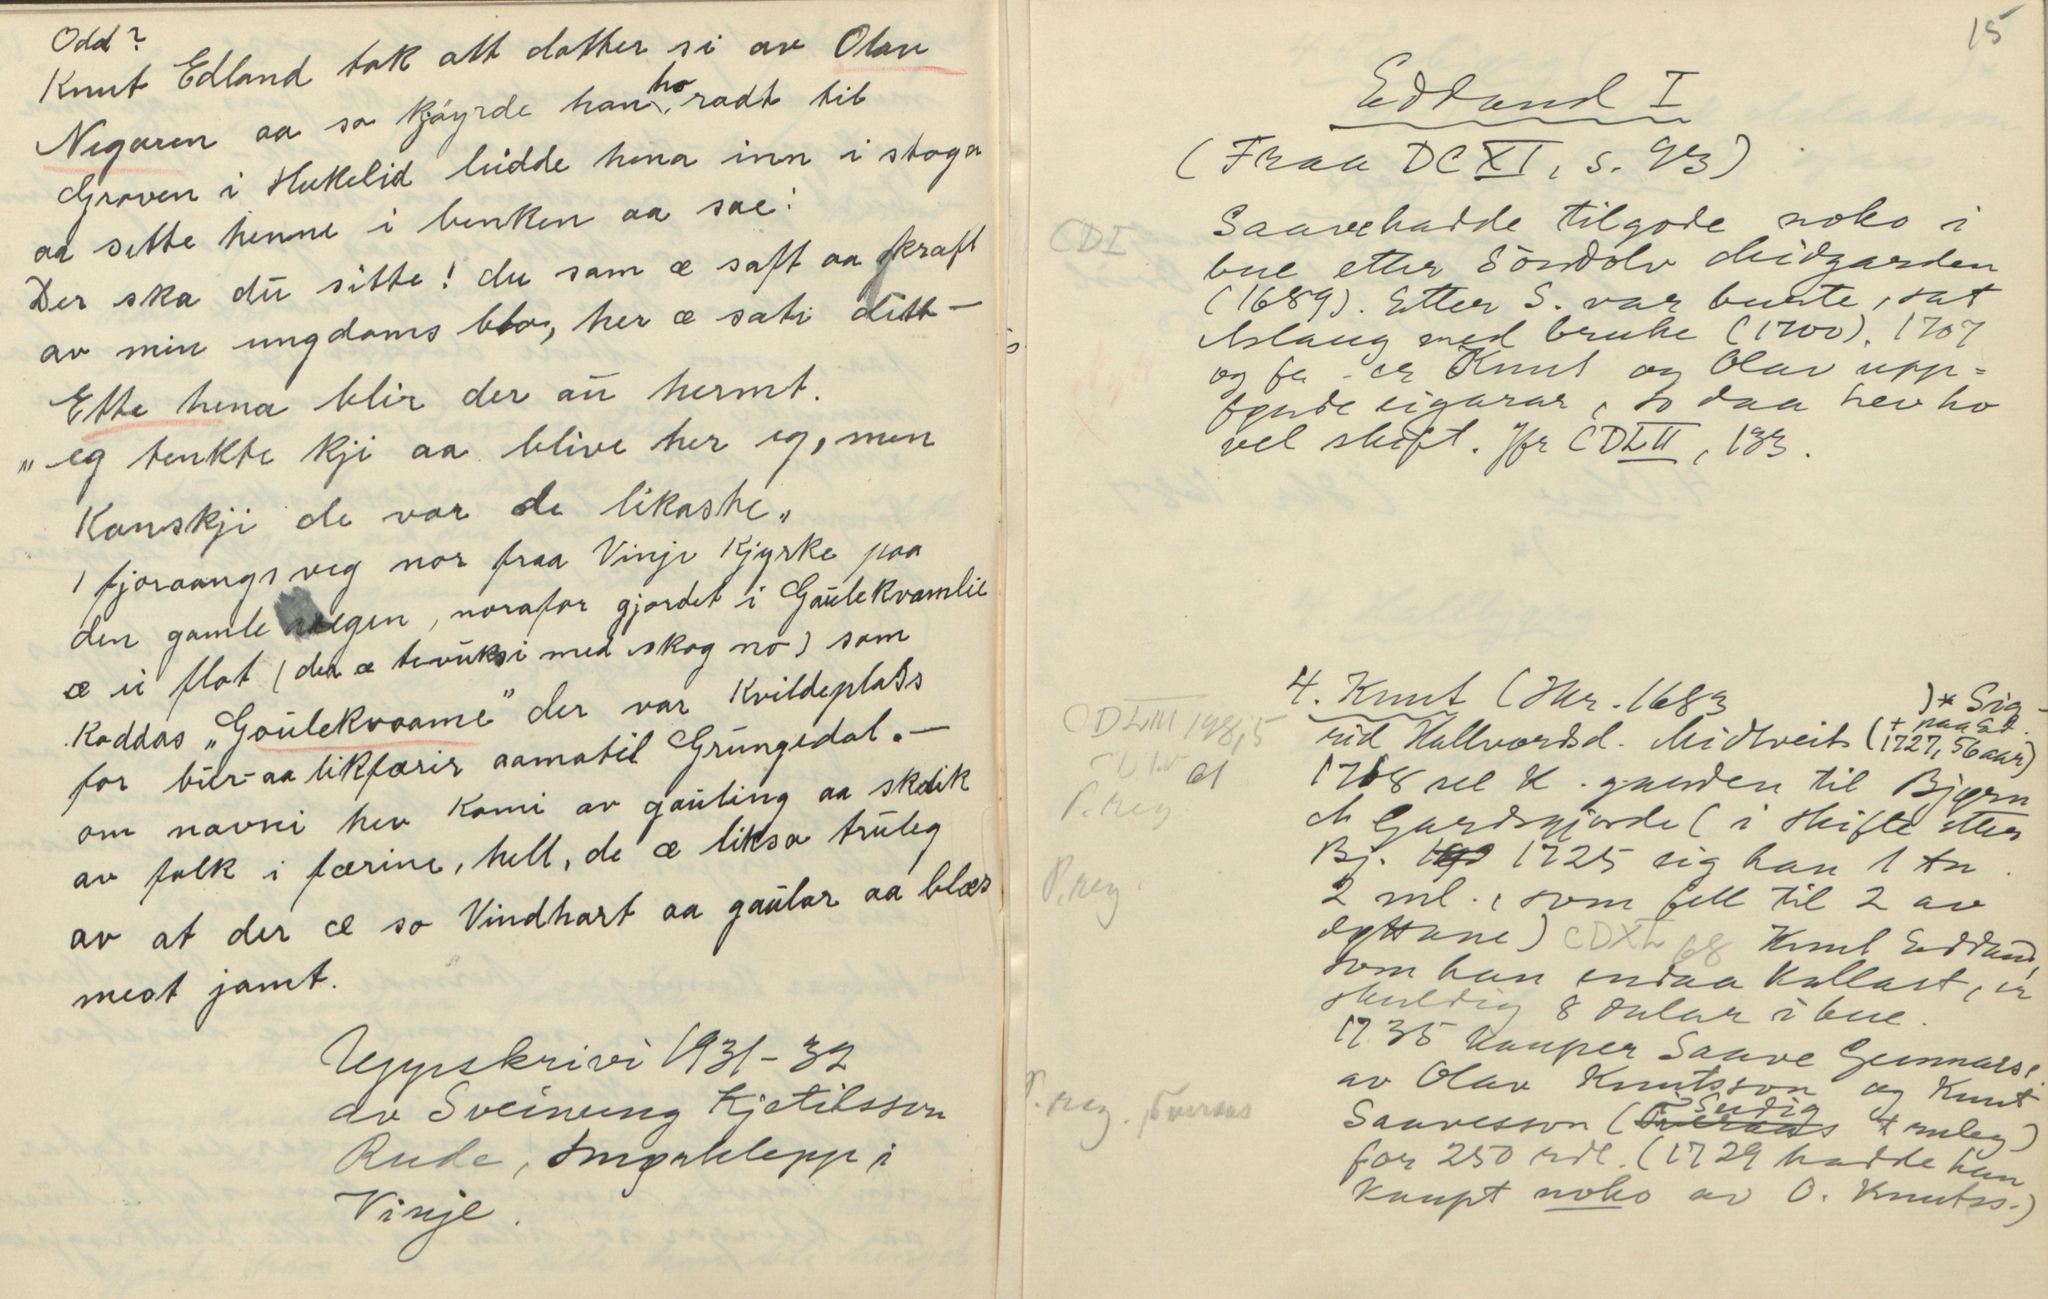 Odd?
Knut Edland tok att dotter si av Olav
Negaren aa so kjöyrde han ho radt til
Groven i Haukelid leidde hena inn i stoga
aa sette henne i benken aa sae:
Der ska dū sitte! du som æ saft aa kraft
av min ungdoms blo, her æ sati ditt –
Ette hena blir der aū hermt.
„eg tenkte kji aa blive her eg, men
Kanskji de var de likaste„
I fjoraangs veg nor fraa Vinje Kjyrke paa
den gamle vegen, norafor gjordet i Gaūlekvamlie
æ ei flot (der æ tevūksi med skog no) som
kaddas „Gaūlekvaame” der var Kvildeplass
for būr- aa likfærir aamatil Grungedal. —
om navni hev komi av gaūling aa skrik
av folk i færine, hell, de æ likso trūleg
av at der æ so Vindhart aa gaūlar aa blæs
mest jamt.
Uppskrivi 1931–32
av Sveinung Kjetilsson
Rude, Smørklepp i
Vinje.
15
Edland I
(Fraa DCXI, s. 93)
CDI
Saave hadde tilgode noko i
bue etter Söndolv Midgarden
(1689). Etter S. var burte, sat
Aslaug med bruke (1700). 1707
og fer Knut og Olav upp-
fynde eigarar, so daa hev ho
vel skift. Jfr CDLII, 133.
4. Knut (Hkr. 1683 )* Sig-
rid Hallvordsd. Midtveit († paa Ed.
1727, 56 aar)
CDLIII 198,5
1708 sel K. garden til Bjørn
P.reg
Gardsgjorde (i skifte etter
Bj. 1725 eig han 1 tn.
P.reg.
2 ml., som fell til 2 av
døttane) CDXL 68 Knut Edland,
som han endaa kallast, er
skuldig 8 dalar i bue.
1735 kauper Saave Gunnarss.
av Olav Knutsson og Knut
P.reg. Tveraas
Saavesson (Tveraas truleg)
for 250 rdl. (1729 hadde han
kaupt noko av O. Knutss.)